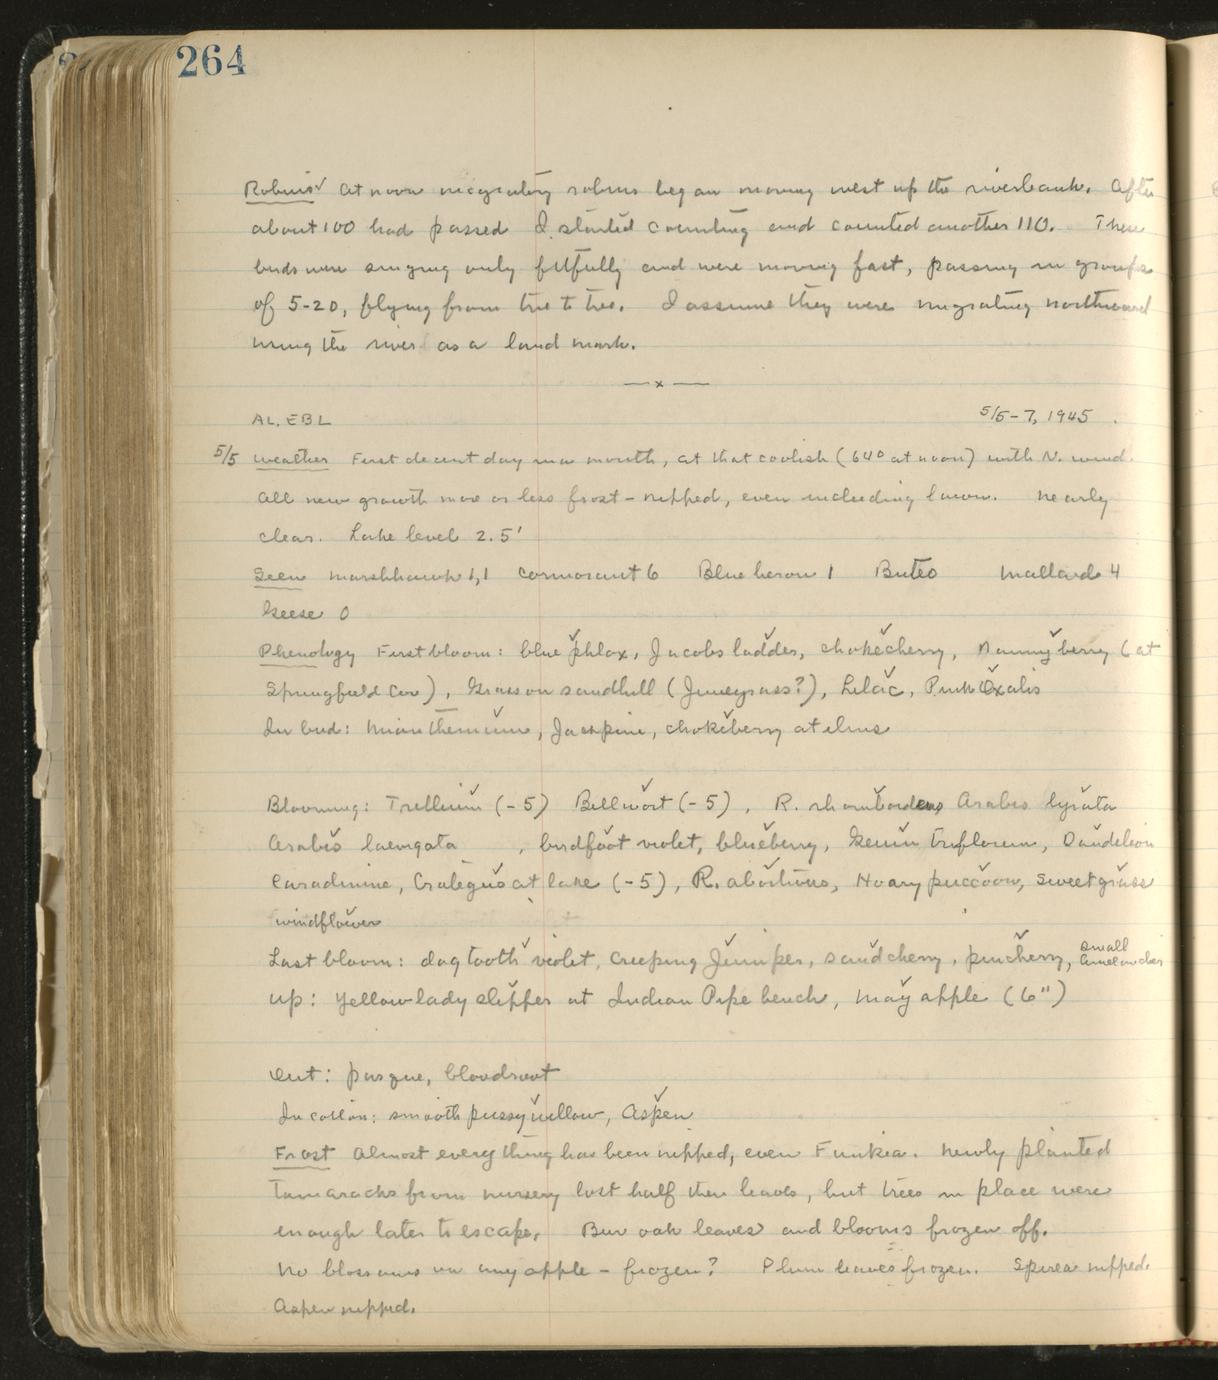 264
Robins✓ At noon migrating robins began moving west up the riverbank. After
about 100 had passed I started counting and counted another 110. These
birds were singing only fitfully and were moving fast, passing in groups
of 5-20, flying from tree to tree. I assume they were migrating northward
using the river as a land mark.
—x—
AL, EBL 5/5-7, 1945
5/5 Weather First decent day in a month, at that coolish (64° at noon) with N. wind.
All new growth more or less frost-nipped, even including lawn. Nearly
clear. Lake level 2.5'
Seen Marshhawk 1,1 Cormorant 6 Blue heron 1 Buteo Mallard 4
Geese 0
Phenology First bloom: blue phlox, Jacobs ladder, chokecherry, Nannyberry (at
Springfield Cor), Grass on sandhill (Junegrass?), Lilac, Pink Oxalis
In bud: Mianthemum, Jackpine, chokeberry at elms
Blooming: Trillium (-5) Bellwort (-5), R. rhomboideus Arabis lyrata
Arabis laevigata , birdfoot violet, blueberry, Geum triflorum, Dandelion
Caradmine, Crategus at lake (-5), R. abortivus, Hoary puccoon, Sweetgrass
windflower
Last bloom: dogtooth violet, creeping Juniper, sandcherry, pincherry, small Amelanchier
Up: Yellow lady slipper at Indian Pipe bench, May apple (6")
Out: pasque, bloodroot
In cotton: smooth pussywillow, Aspen
Frost Almost everything has been nipped, even Funkia. Newly planted
Tamaracks from nursery lost half their leaves, but trees in place were
enough later to escape. Bur oak leaves and blooms frozen off.
No blossoms on any apple - frozen? Plum leaves frozen. Spirea nipped.
Aspen nipped.